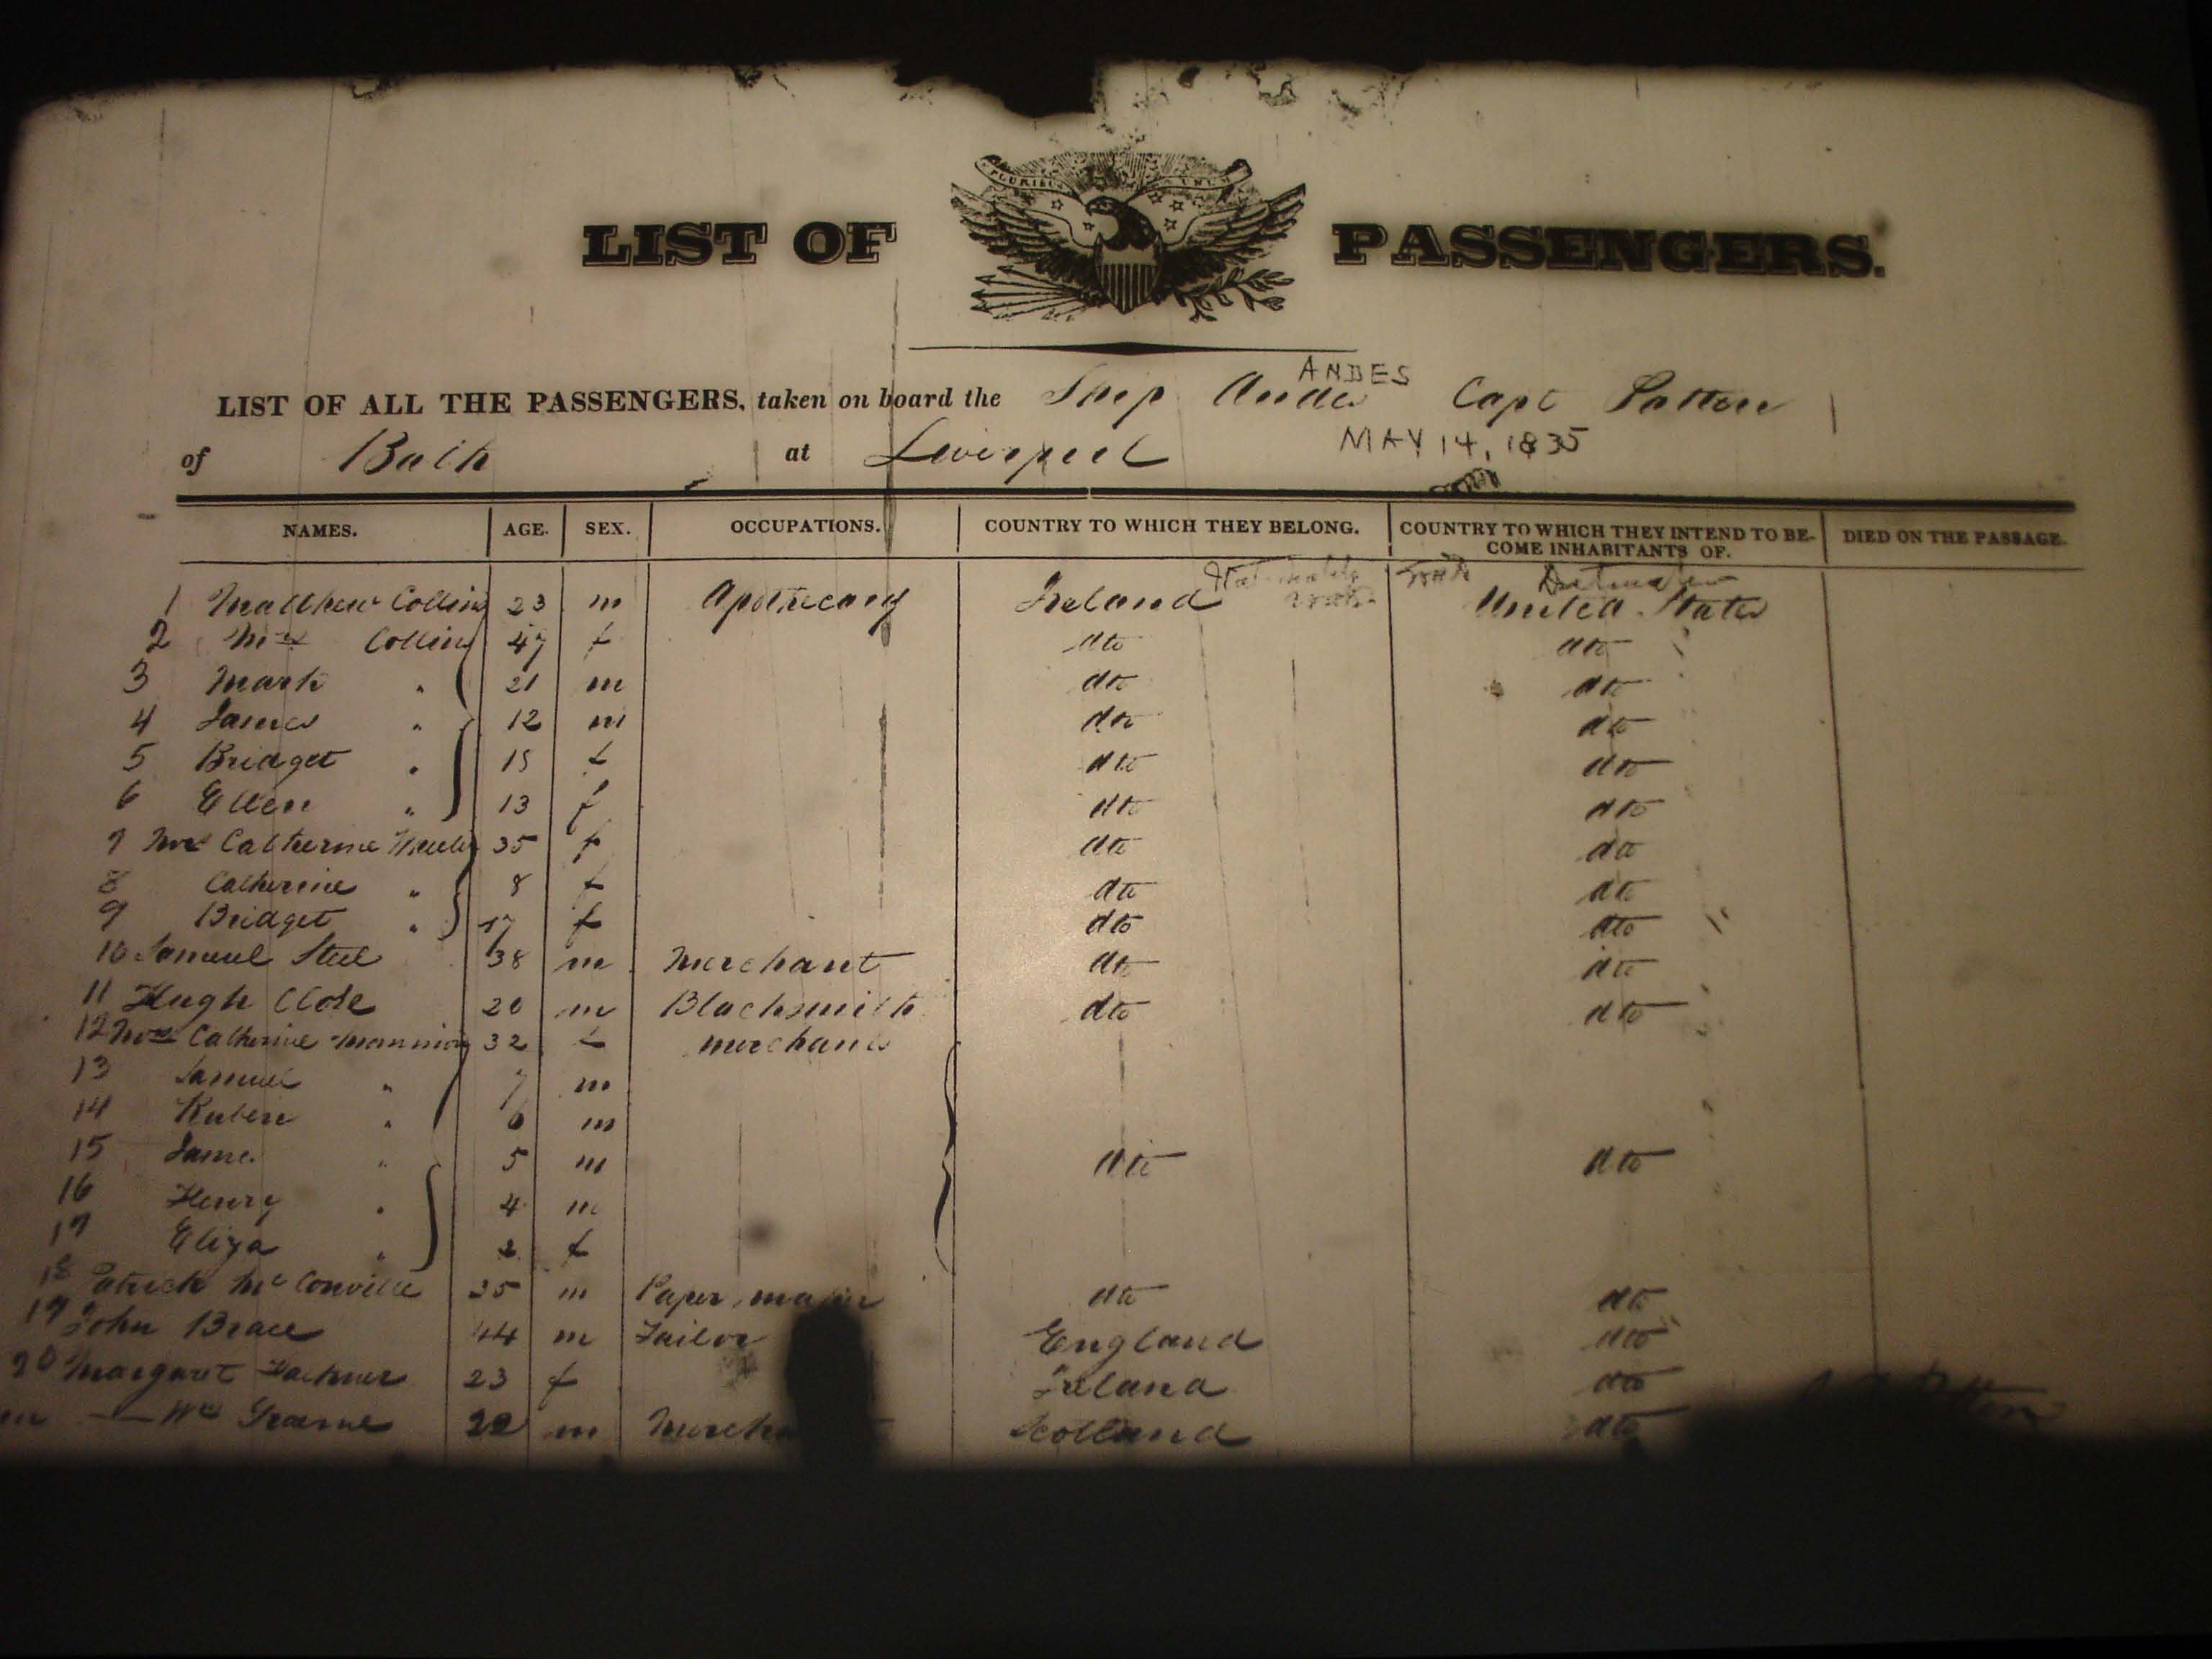 PLURIBUS UNUM
LIST OF PASSENGERS.
ANDES
LIST OF ALL THE PASSENGERS, taken on board the Ship Andes Capt Patten
of Bath at Liverpool MAY 14, 1835
NAMES. AGE. SEX. OCCUPATIONS. COUNTRY TO WHICH THEY BELONG. COUNTRY TO WHICH THEY INTEND TO BE- COME INHABITANTS OF. DIED ON THE PASSAGE.
1 Matthew Collins 23 m Apothecary Ireland United States
2 Mrs Collins 47 f dto dto
3 Mark " 21 m dto dto
4 James " 12 m dto dto
5 Bridget " 15 f dto dto
6 Ellen " 13 f dto dto
7 Mrs Catherine 35 f dto dto
8 Catherine " 8 f dto dto
9 Bridget " 17 f dto dto
10 Samuel Steel 38 m Merchant dto dto
11 Hugh Close 20 m Blacksmith dto dto
12 Mrs Catherine Manning 32 f merchants
13 Samuel " 7 m
14 Ruben " 6 m
15 James " 5 m dto dto
16 Henry " 4 m
17 Eliza " 2 f
18 Patrick McConville 35 m Paper maker dto dto
19 John Brace 44 m Tailor England dto
20 Margaret 23 f Ireland dto
Wm Graeme 22 m Mercha Scotland dto